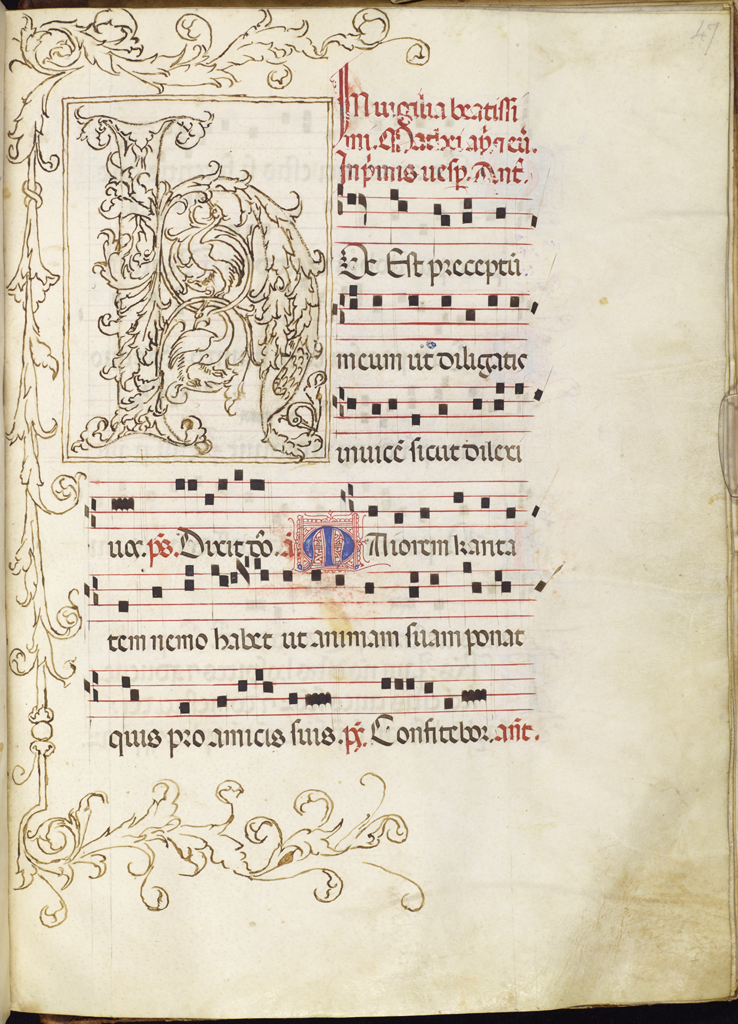 47
In uigilia beatissi
mi. Mathei apłi et eū.
In primis uesp. Ant.
H Oc Est preceptū
meum ut diligatis
inuicē sicut dilexi
uos. ps. Dixit dō. a M Aiorem karita
tem nemo habet ut animam suam ponat
quis pro amicis suis. ps. Confitebor. ant.